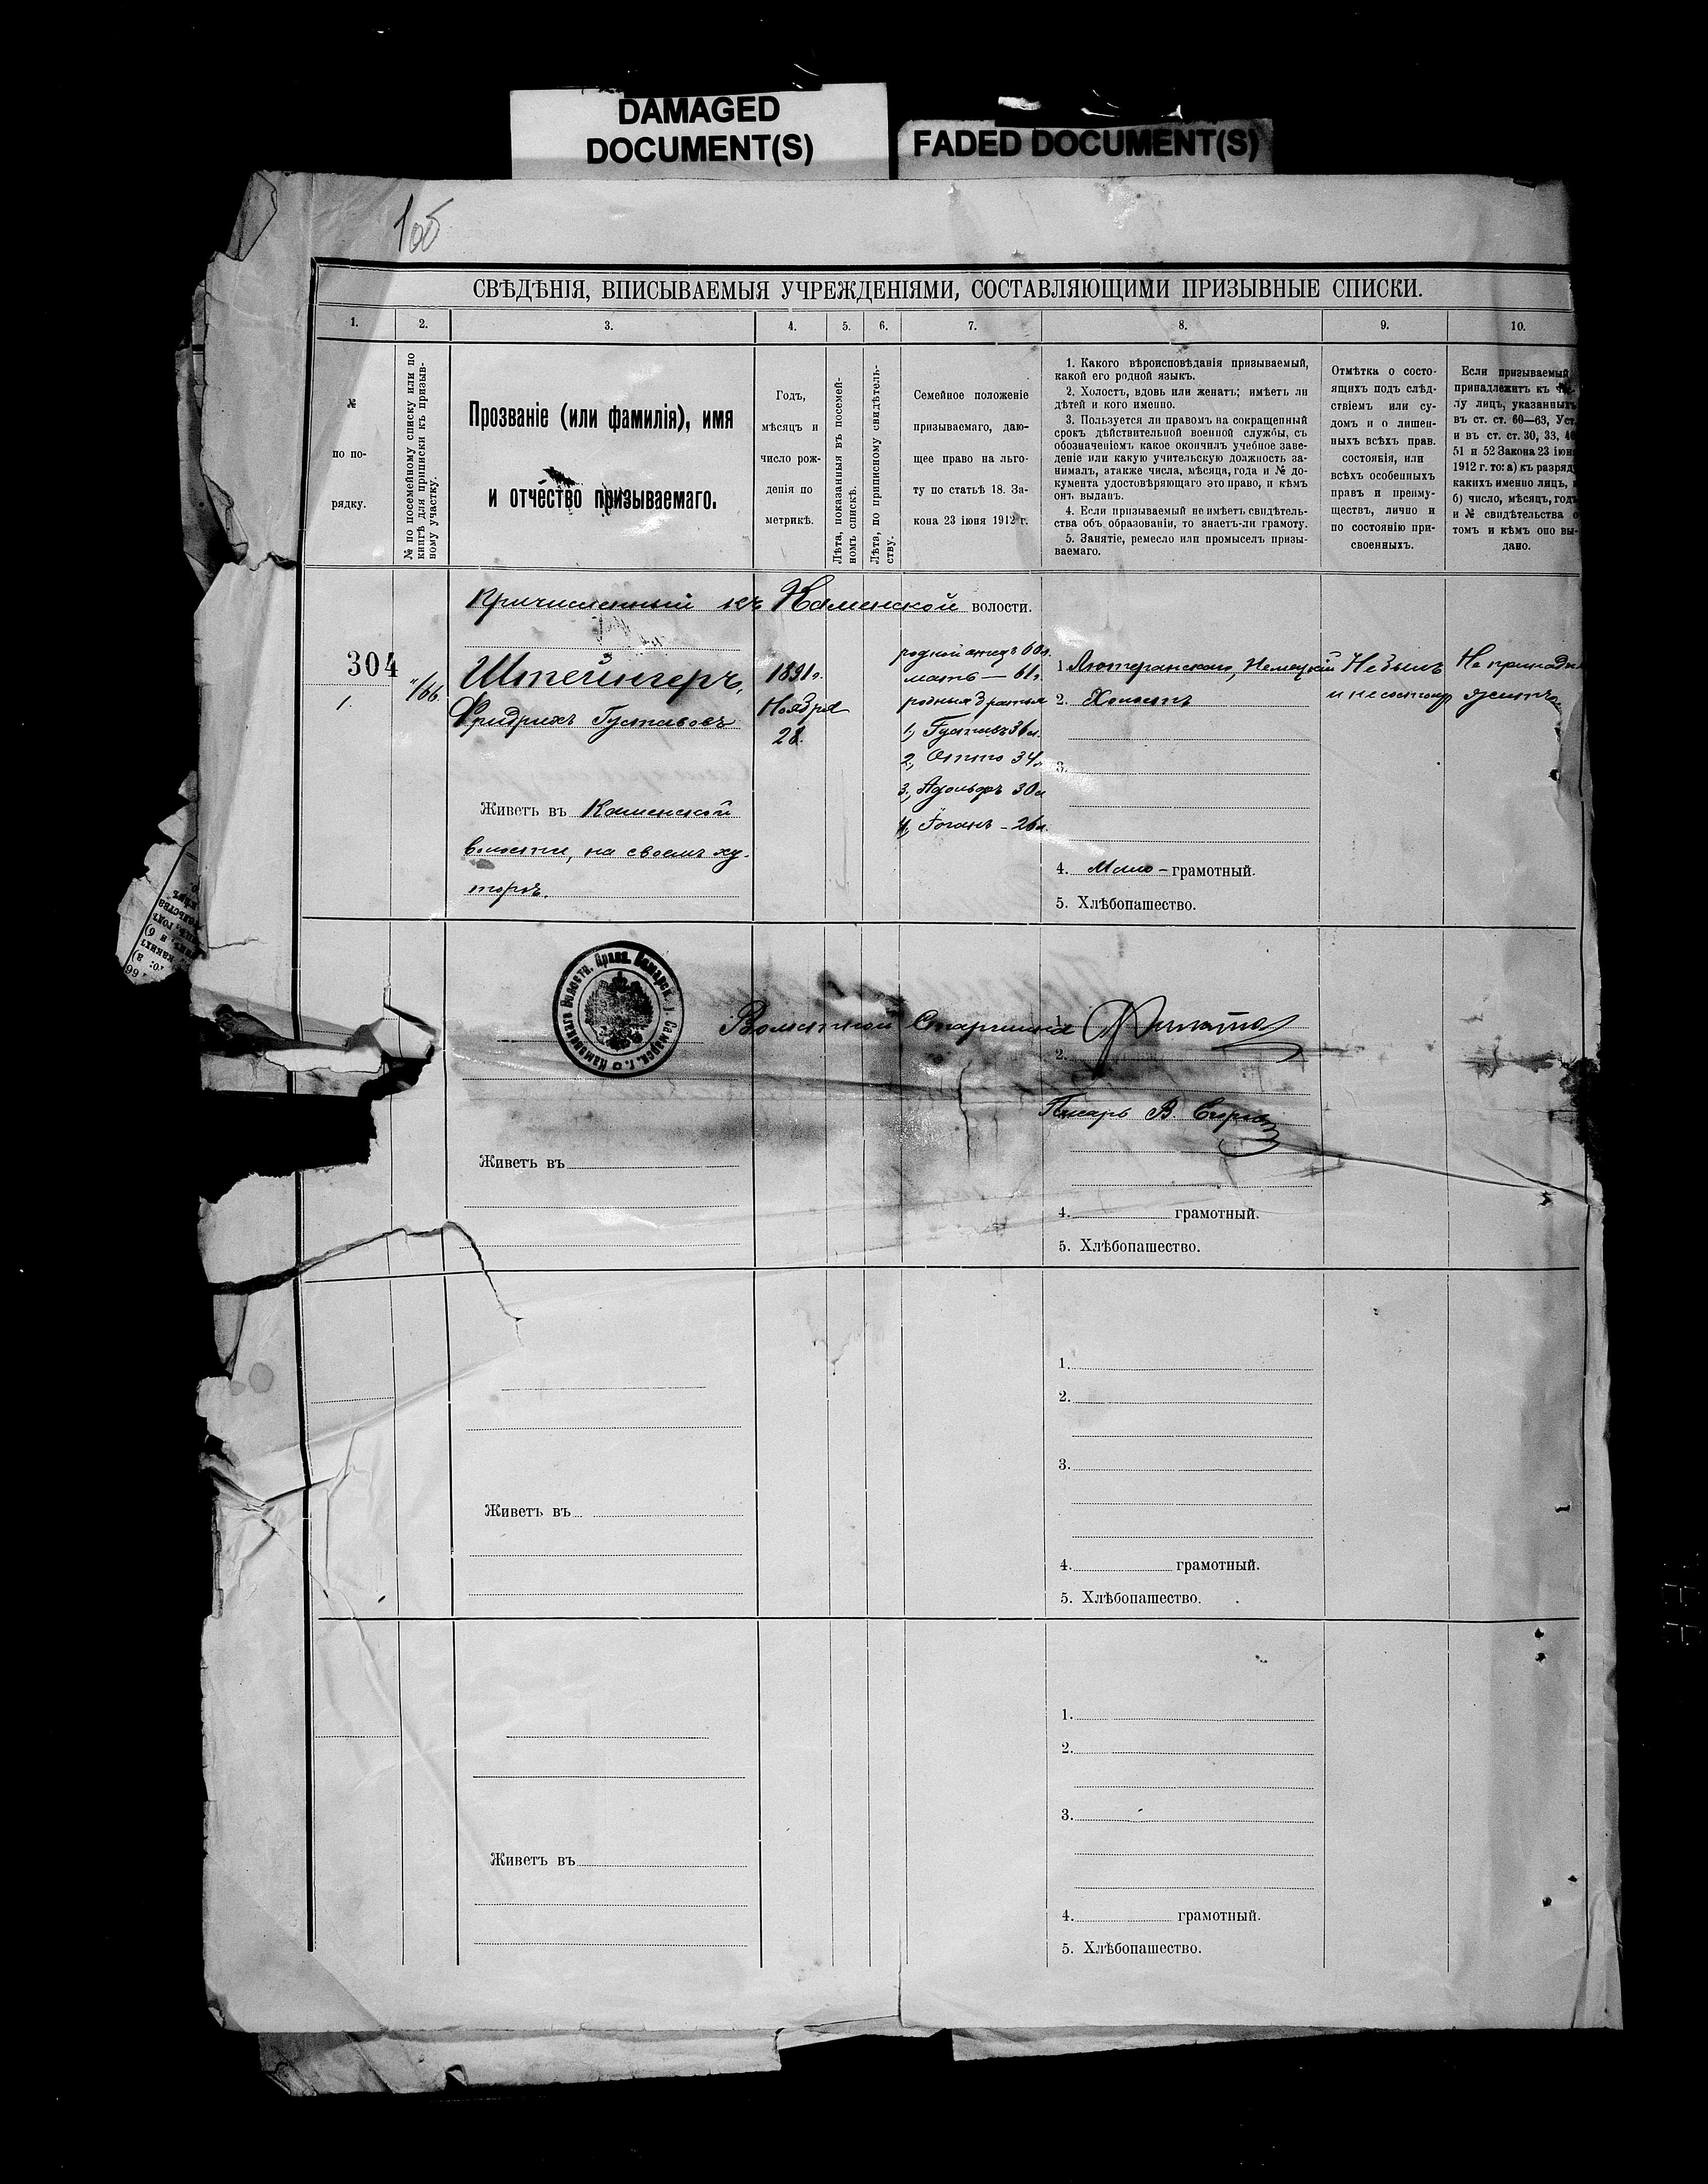 DAMAGED
DOCUMENT(S)
FADED DOCUMENT(S)
СВѢДѢНІЯ, ВПИСЫВАЕМЫЯ УЧРЕЖДЕНІЯМИ, СОСТАВЛЯЮЩИМИ ПРИЗЫВНЫЕ СПИСКИ.
1. 2. 3. 4. 5. 6. 7. 8. 9. 10.
№
по по-
рядку.
№ по посемейному списку или по
книгѣ для приписки къ призыв-
ному участку.
Прозваніе (или фамилія), имя
и отчество призываемаго.
Годъ,
мѣсяцъ и
число рож-
денія по
метрикѣ.
Лѣта, показанныя въ посемей-
номъ спискѣ.
Лѣта, по приписному свидѣтель-
ству.
Семейное положеніе
призываемаго, даю-
щее право на льго-
ту по статьѣ 18. За-
кона 23 іюня 1912 г.
1. Какого вѣроисповѣданія призываемый,
какой его родной языкъ.
2. Холостъ, вдовъ или женатъ; имѣетъ ли
дѣтей и кого именно.
3. Пользуется ли правомъ на сокращенный
срокъ дѣйствительной военной службы, съ
обозначеніемъ какое окончилъ учебное заве-
деніе или какую учительскую должность за-
нималъ, атакже числа, мѣсяца, года и № до-
кумента удостовѣряющаго это право, и кѣмъ
онъ выданъ.
4. Если призываемый не имѣетъ свидѣтель-
ства объ образованіи, то знаетъ-ли грамоту.
5. Занятіе, ремесло или промыселъ призы-
ваемаго.
Отмѣтка о состо-
ящихъ подъ слѣд-
ствіемъ или су-
домъ и о лишен-
ныхъ всѣхъ прав.
состоянія, или
всѣхъ особенныхъ
правъ и преиму-
ществъ, лично и
по состоянію при-
своенныхъ.
Если призываемый
принадлежитъ къ
лу лицъ, указанныхъ
въ ст. ст. 60—63, Уст.
и въ ст. ст. 30, 33, 40
51 и 52 Закона 23 іюня
1912 г. то: а) къ разряд
какихъ именно лицъ, и
б) число, мѣсяцъ, годъ
и № свидѣтельства о
томъ и кѣмъ оно вы-
дано.
Причисленный къ Каменской волости.
304
1.
166
Штейнгеръ,
Фридрихъ Густавовъ
Живетъ въ Каменской
волости, на своемъ ху-
торѣ.
1891 г.
Ноября
28.
родной отецъ 60 л.
мать — 61 г.
родныя братья
1, Густавъ 36 л.
2, Отто 34 л.
3, Адольфъ 30 л
4, Іоганъ - 26 л.
1. Лютеранскаго, Немецкій
2. Холостъ
3.
4. Мало- грамотный.
5. Хлѣбопашество.
Не былъ
и не состоитъ
Не принадле
житъ
Волостной Старшина
1.
2.
Писарь В.
Живетъ въ
4. грамотный.
5. Хлѣбопашество.
1.
2.
3.
Живетъ въ
4. грамотный.
5. Хлѣбопашество.
1.
2.
3.
Живетъ въ
4. грамотный.
5. Хлѣбопашество.